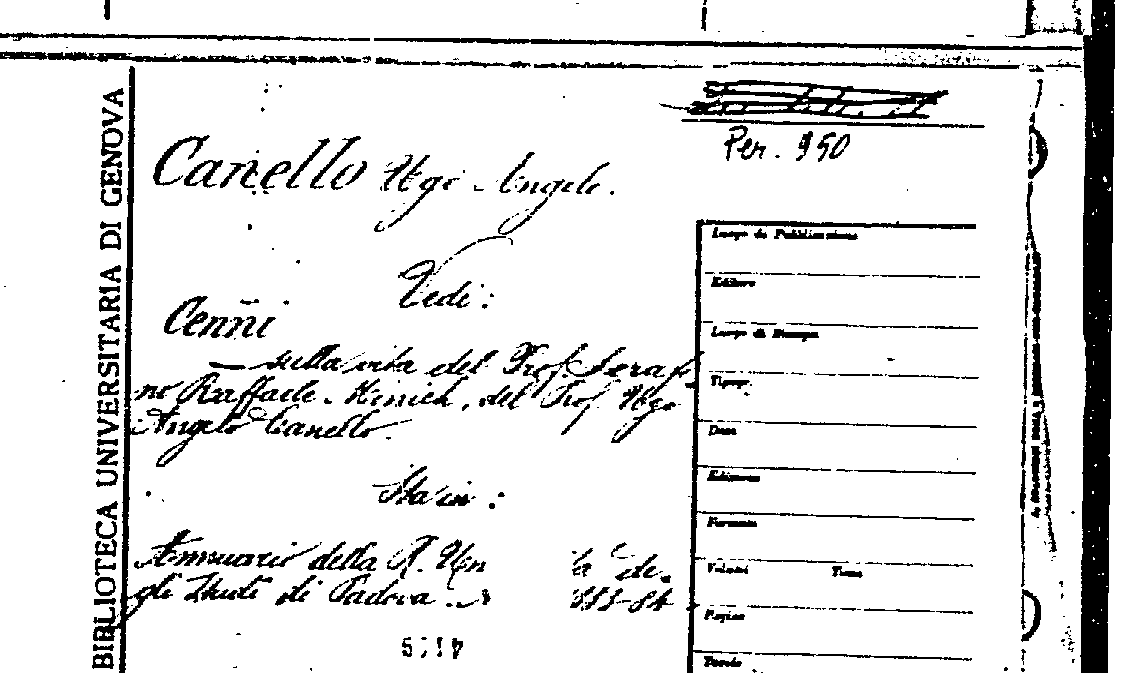 BIBLIOTECA UNIVERSITARIA DI GENOVA
Per. 950
Canello Ugo Angelo.
Vedi:
Cenni
— sulla vita del Prof. Serafi
no Raffaele Minich, del Prof. Ugo
Angelo Canello.
Sta in:
Annuario della R. Un tà de
gli Studi di Padova 883-84
Luogo di Pubblicazione
Editore
Luogo di Stampa
Tipogr.
Data
Edizione
Formato
Volumi Tomo
Pagine
Tavole